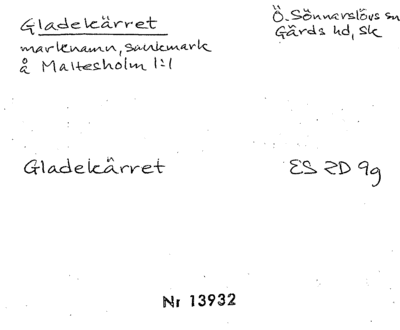 Gladekärret
marknamn, sankmark
å Maltesholm 1:1
Ö. Sönnarslövs sn
Gärds hd, Sk
Gladekärret
ES 2D 9g
Nr 13932